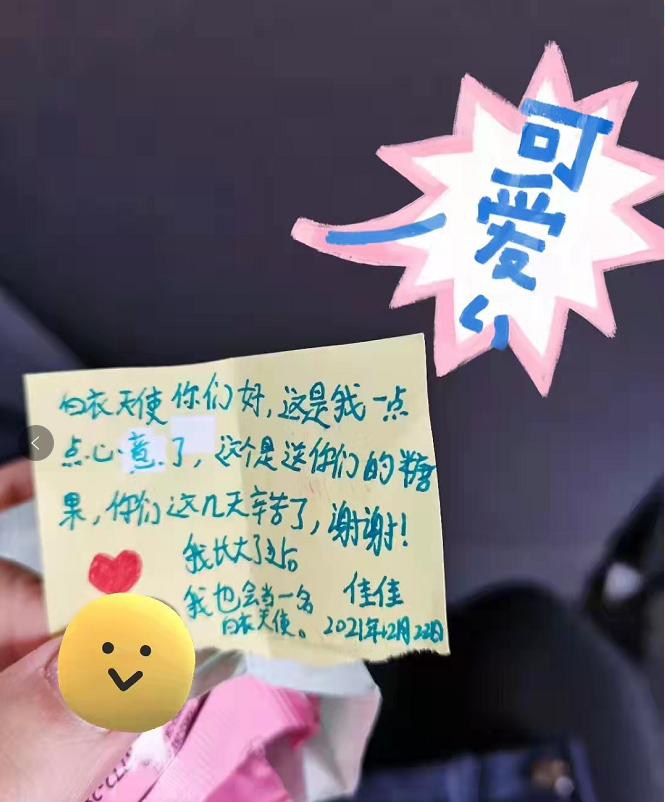 可爱
白衣天使你们好，这是我一点
点心意了，这个是送你们的糖
果，你们这几天辛苦了，谢谢！
我长大了以后
我也会当一名
白衣天使。
佳佳
2021年12月22日